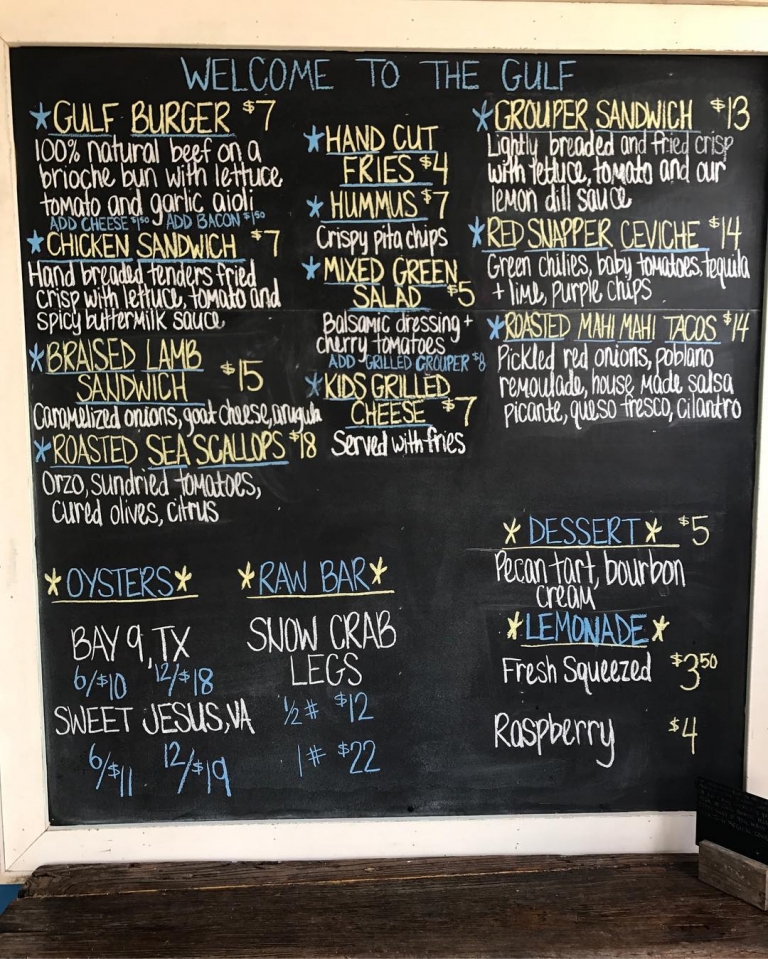 WELCOME TO THE GULF
*GULF BURGER $7
100% natural beef on a
brioche bun with lettuce
tomato and garlic aioli
ADD CHEESE $1.50 ADD BACON $1.50
*CHICKEN SANDWICH $7
Hand breaded tenders fried
crisp with lettuce, tomato and
spicy buttermilk sauce
*BRAISED LAMB
SANDWICH $15
Caramelized onions, goat cheese, arugula
*ROASTED SEA SCALLOPS $18
Orzo, sundried tomatoes,
cured olives, citrus
*HAND CUT
FRIES $4
*HUMMUS $7
Crispy pita chips
*MIXED GREEN
SALAD $5
Balsamic dressing +
cherry tomatoes
ADD GRILLED GROUPER $8
*KIDS GRILLED
CHEESE $7
Served with fries
*GROUPER SANDWICH $13
Lightly breaded and fried crisp
with lettuce, tomato and our
lemon dill sauce
*RED SNAPPER CEVICHE $14
Green chilies, baby tomatoes, tequila
+ lime, purple chips
*ROASTED MAHI MAHI TACOS $14
Pickled red onions, poblano
remoulade, house made salsa
picante, queso fresco, cilantro
*OYSTERS*
BAY 9, TX
6/$10 12/$18
SWEET JESUS, VA
6/$11 12/$19
*RAW BAR*
SNOW CRAB
LEGS
1/2# $12
1# $22
*DESSERT* $5
Pecan tart, bourbon
cream
*LEMONADE*
Fresh Squeezed $3.50
Raspberry $4